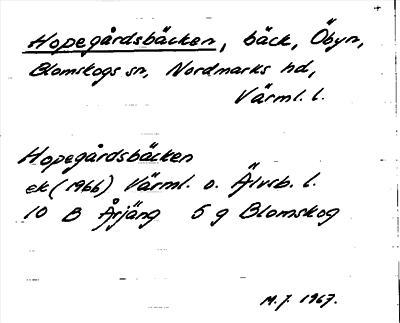 Hopegårdsbäcken, bäck, Öbyn,
Blomskogs sn, Nordmarks hd,
Värml. l.
Hopegårdsbäcken
ek (1966) Värml. o. Älvsb. l.
10 B Årjäng 5 g Blomskog
M.J. 1967.